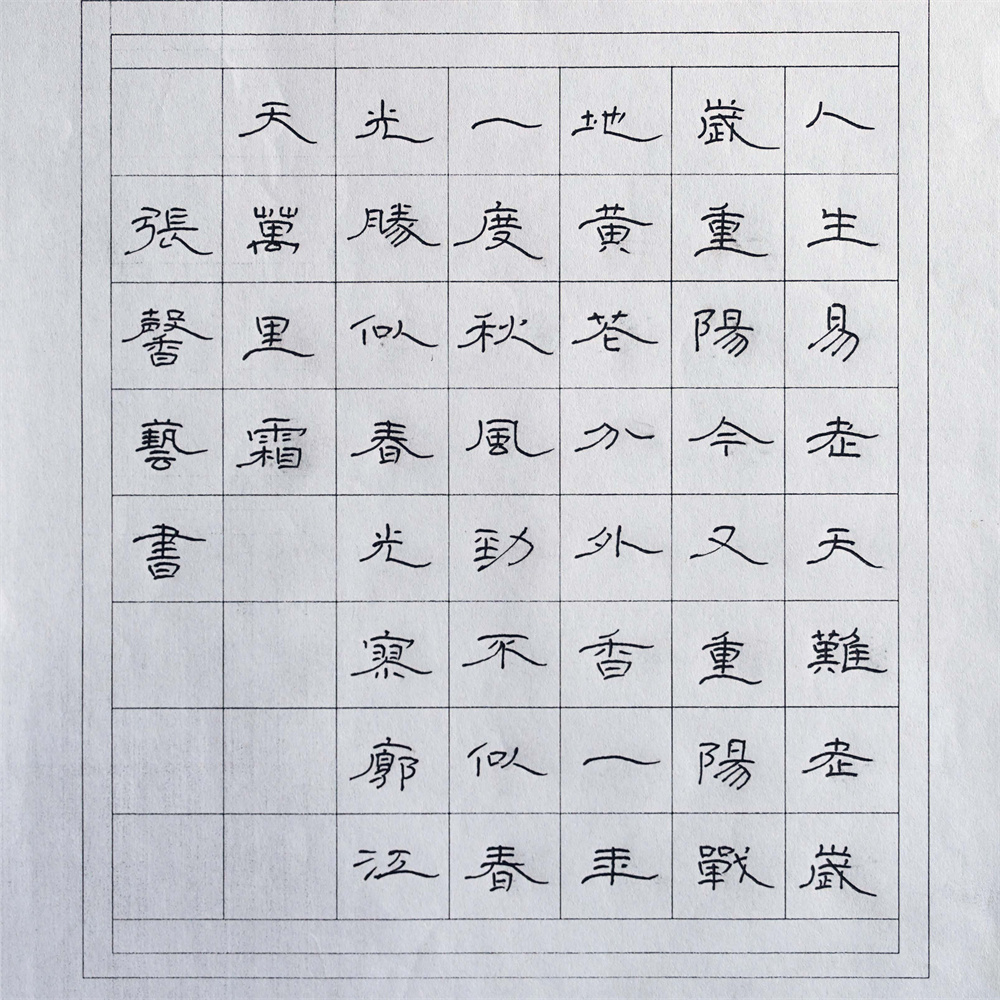 人生易老天難老歲
歲重陽今又重陽戰
地黃花分外香一年
一度秋風勁不似春
光勝似春光寥廓江
天萬里霜
張馨藝書